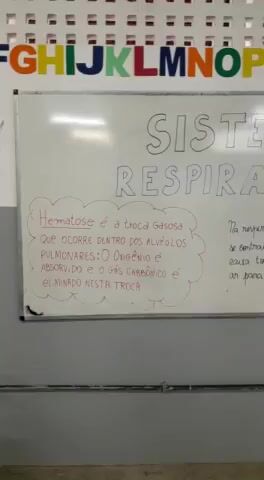 FGHIJKLMNOP
SISTE
RESPIRA
Hematose é a troca gasosa
que ocorre dentro dos alvéolos
pulmonares: O oxigênio é
absorvido e o gás carbônico é
eliminado nesta troca
Na respir
se contra
ar para